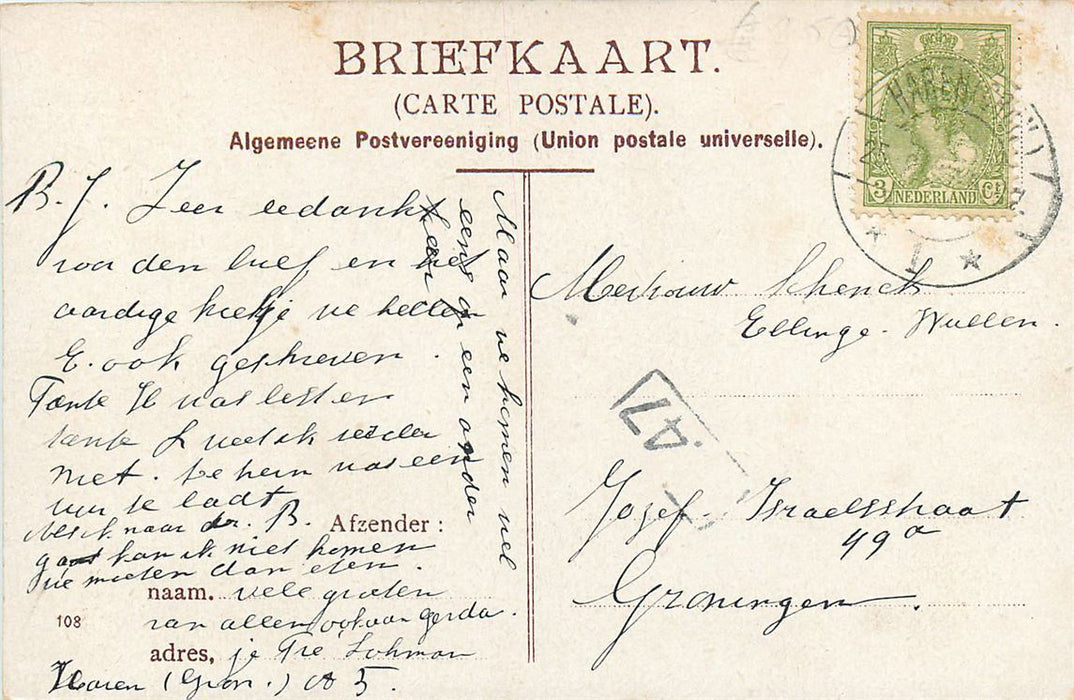 BRIEFKAART.
(CARTE POSTALE).
Algemeene Postvereeniging (Union postale universelle).
HAREN
1
3 NEDERLAND Ct
B. J. Zeer bedankt
voor den brief en het
aardige kiekje we hebben
E. ook geschreven.
Tante H was lest en
tante J weet ik verder
niet. De trein was een
uur te laat
Als ik naar dr. B.
gaat kan ik niet komen
we moeten dan eten.
Maar we komen wel
eens op een ander
keer
Afzender:
naam. vele groeten
van allen ook van Gerda.
adres, je Tré Lohman
Haren (Gron.) A 5.
108
Mevrouw Schenck
Ellinge. Wullen.
47
Jozef Israelsstraat
49a
Groningen.